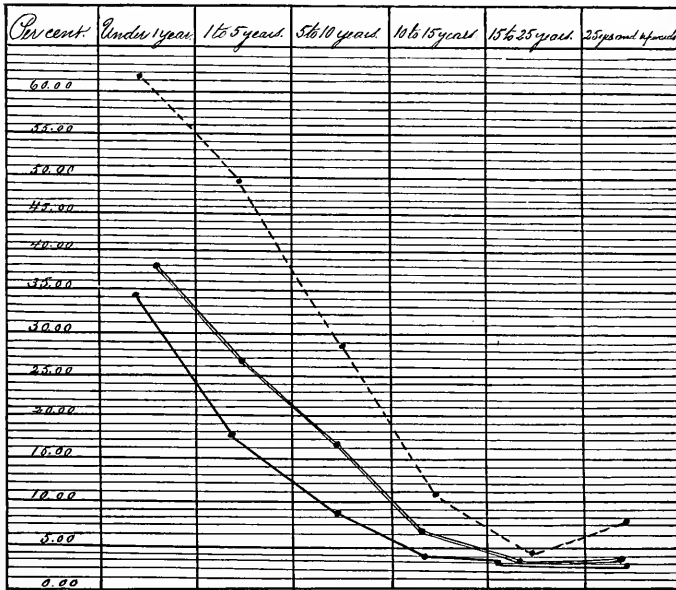 Per cent. Under 1 year. 1 to 5 years. 5 to 10 years. 10 to 15 years. 15 to 25 years. 25 yrs and upwards
60.00
55.00
50.00
45.00
40.00
35.00
30.00
25.00
20.00
15.00
10.00
5.00
0.00